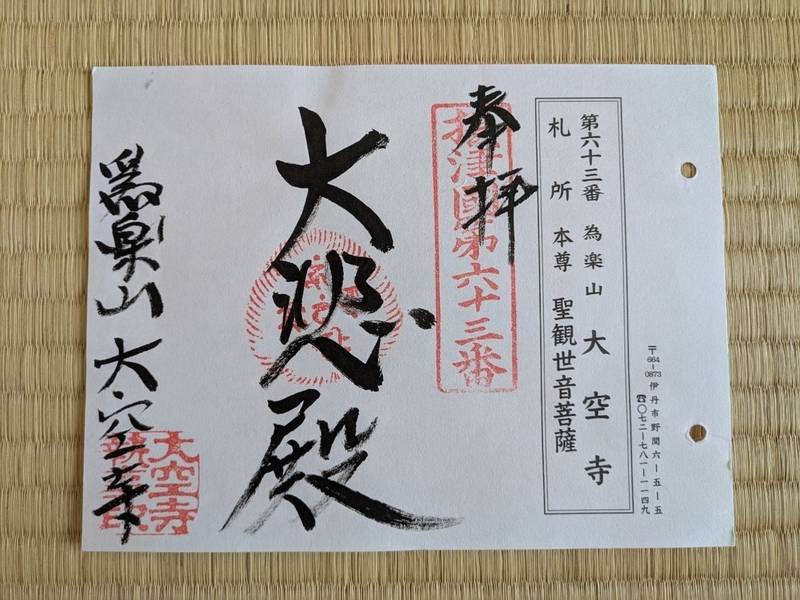 第六十三番 為楽山 大空寺
札所 本尊 聖観世音菩薩
〒664-0873 伊丹市野間六-五-五
☎〇七二-七八一-一一四九
奉拝
摂津國第六十三番
大悲殿
為楽山 大空寺
大空寺